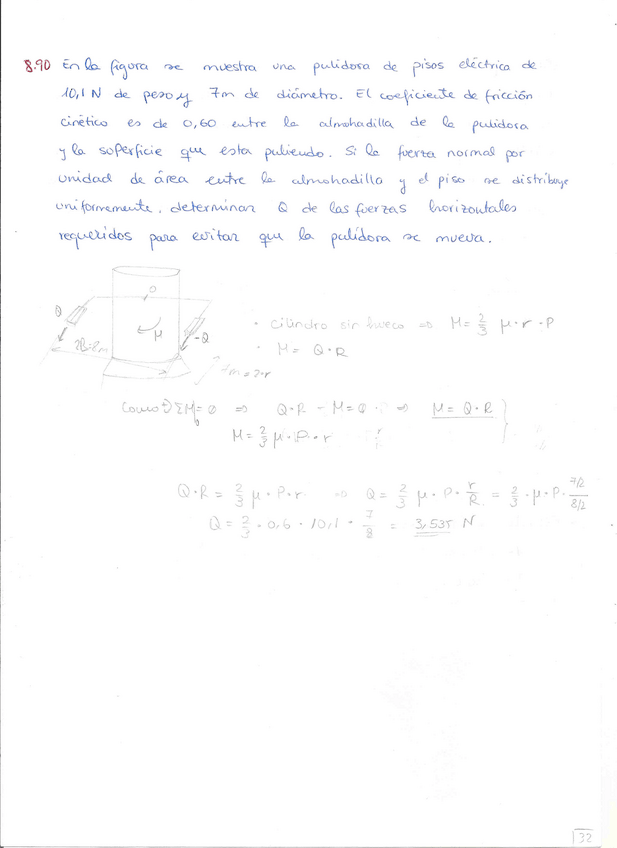 8.90 En la figura se muestra una pulidora de pisos eléctrica de
10,1 N de peso y 7m de diámetro. El coeficiente de fricción
cinético es de 0,60 entre la almohadilla de la pulidora
y la superficie que esta puliendo. Si la fuerza normal por
unidad de área entre la almohadilla y el piso se distribuye
uniformemente, determinar Q de las fuerzas horizontales
requeridos para evitar que la pulidora se mueva.
Q
M
-Q
7m = 2·r
· Cilindro sin hueco ⇒ M = 2/3 μ·r·P
· M = Q·R
Como ΣM = 0 ⇒ Q·R - M = 0 ⇒ M = Q·R
M = 2/3 μ·P·r
Q·R = 2/3 μ·P·r ⇒ Q = 2/3 μ·P·r/R = 2/3·μ·P·(7/2)/(8/2)
Q = 2/3·0,6·10,1·7/8 = 3,535 N
32